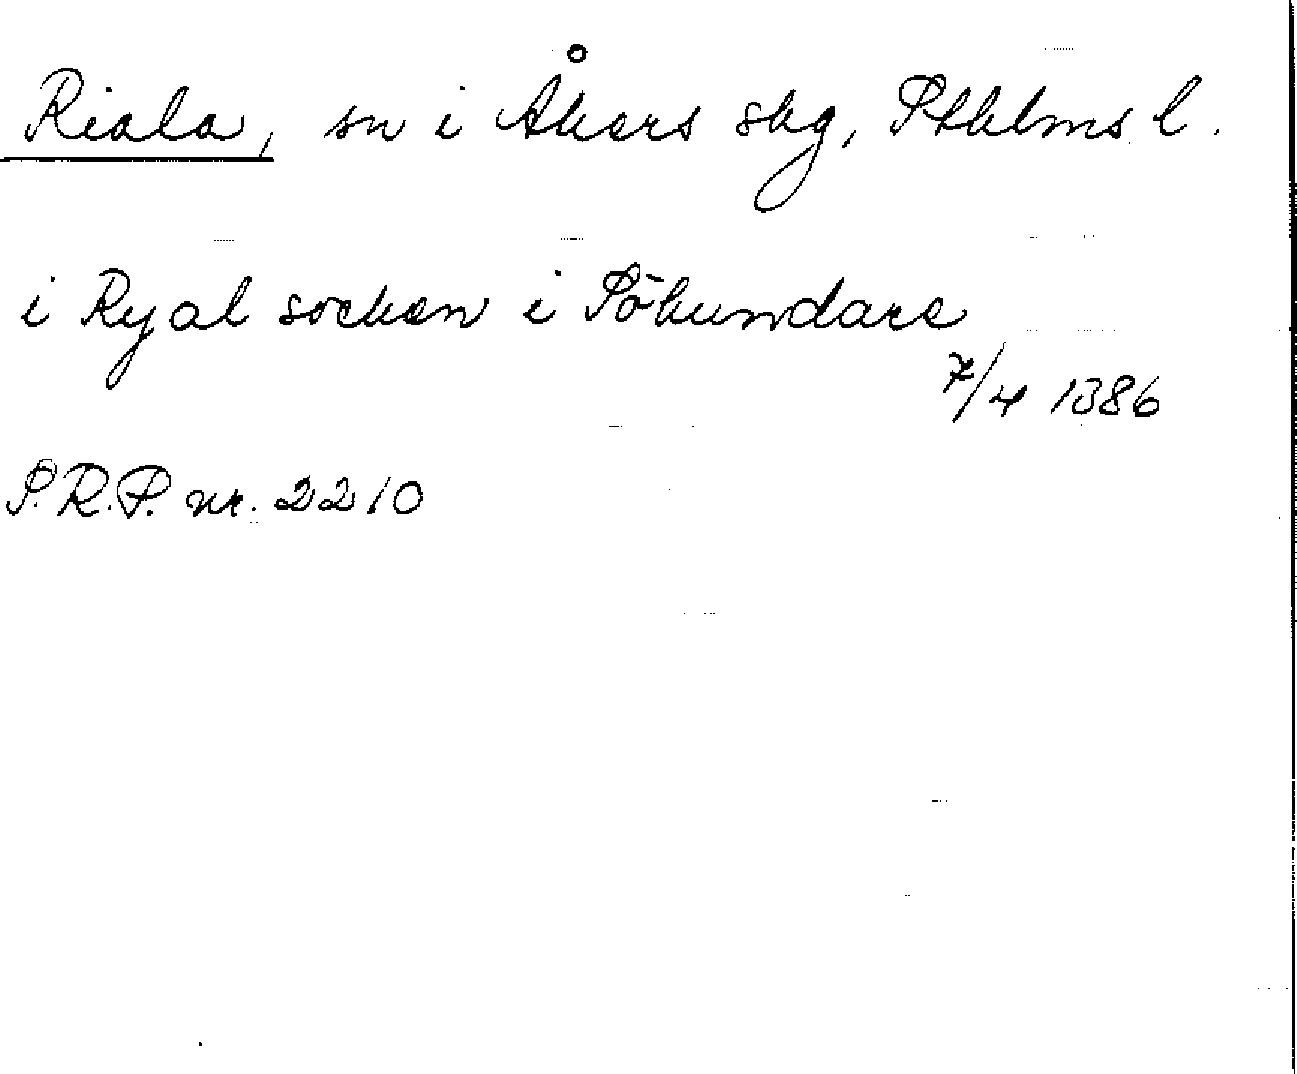 Riala, sn i Åkers skg, Sthlms l.
i Ryal socken i Söhundare
7/4 1386
S.R.P. nr. 2210